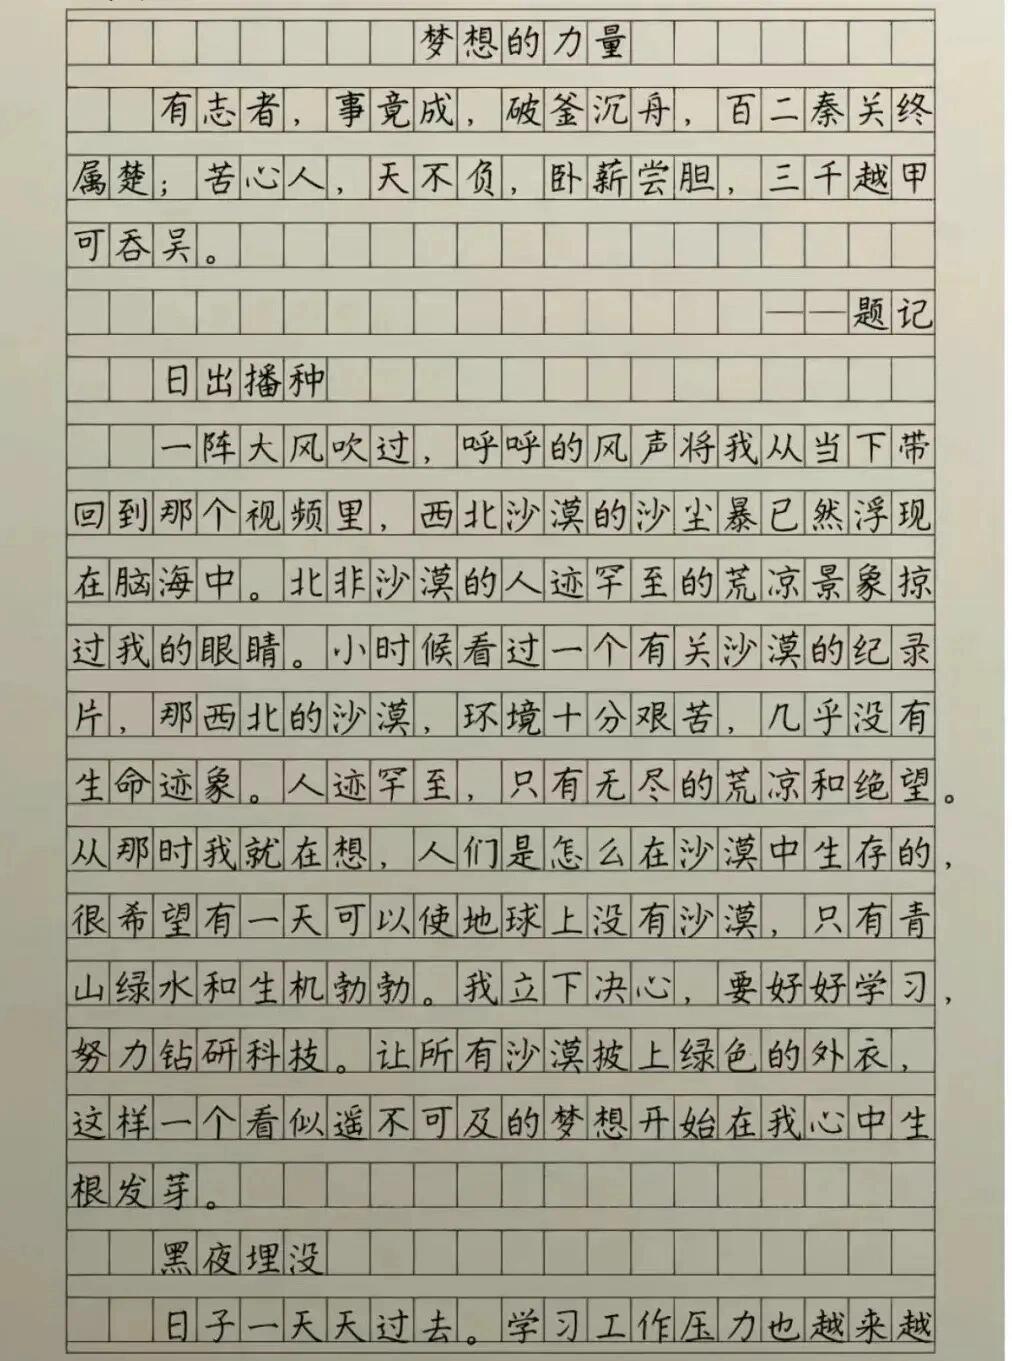 梦想的力量
有志者，事竟成，破釜沉舟，百二秦关终
属楚；苦心人，天不负，卧薪尝胆，三千越甲
可吞吴。
——题记
日出播种
一阵大风吹过，呼呼的风声将我从当下带
回到那个视频里，西北沙漠的沙尘暴已然浮现
在脑海中。北非沙漠的人迹罕至的荒凉景象掠
过我的眼睛。小时候看过一个有关沙漠的纪录
片，那西北的沙漠，环境十分艰苦，几乎没有
生命迹象。人迹罕至，只有无尽的荒凉和绝望。
从那时我就在想，人们是怎么在沙漠中生存的，
很希望有一天可以使地球上没有沙漠，只有青
山绿水和生机勃勃。我立下决心，要好好学习，
努力钻研科技。让所有沙漠披上绿色的外衣，
这样一个看似遥不可及的梦想开始在我心中生
根发芽。
黑夜埋没
日子一天天过去。学习工作压力也越来越